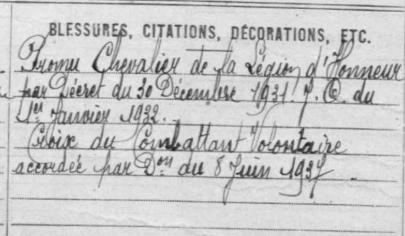 BLESSURES, CITATIONS, DÉCORATIONS, ETC.
Promu Chevalier de la Légion d'Honneur
par Décret du 30 Décembre 1931. J. O. du
1er Janvier 1932.
Croix du Combattant Volontaire
accordée par Don du 8 Juin 1937